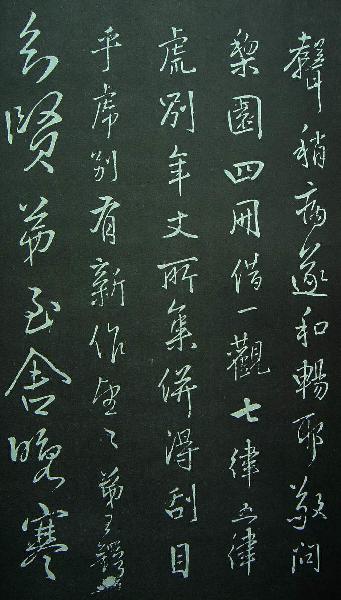 聲稍為遂和暢耶敬問
梨園四冊借一觀七律五律
虎別年丈所集併得刮目
乎席別有新作望〻弟王鐸
賢弟至舍晚寒